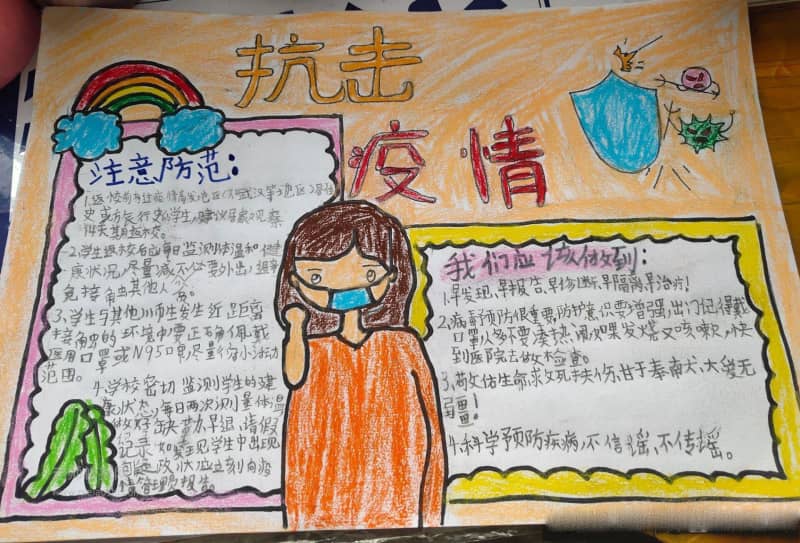 抗击
疫情
注意防范:
1.返校前有过疫情高发地区(如武汉等地区)居住
史或旅行史的学生,建议居家观察
14天期返校。
2.学生返校后应每日监测体温和健
康状况,尽量减不必要外出,
免接触其他人
3、学生与其他师生发生近距离
接触的环境中要正确佩戴
医用口罩或N95口罩尽量缩小活动
范围。
4.学校密切监测学生的健
康状态,每日两次测量体温
做好缺勤、早退、请假
记录如发现学生中出现
状应立刻向疫
情管理
我们应该做到:
1.早发现、早报告、早诊断、早隔离、早治疗!
2、病毒预防很重要,防护意识要增强,出门记得戴
口罩人多不要凑热闹如果发烧又咳嗽,快
到医院去做检查。
3、敬佑生命,求死扶伤,甘于奉南犬,大爱无
疆!
4.科学预防疾病,不信谣、不传摇。